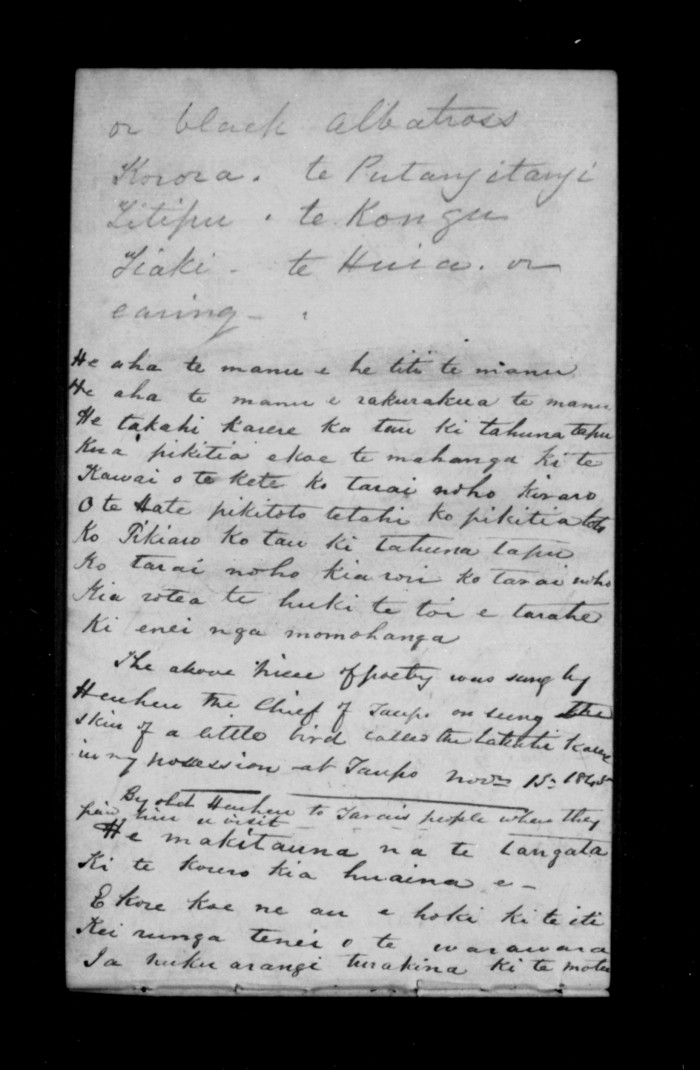 or black Albatross
Korora. te Putangitangi
Titipu. te Kongu
Tiaki - te Huia. or
earing -
He aha te manu e he titi te manu
He aha te manu e rakurakua te manu
He takahi karere ka tau ki tahuna tapu
Kua pikitia e koe te mahanga ki te
Kawai o te kete ko tarai noho kiraro
O te Hate pikitoto tetahi ko pikitia toto
Ko Pikiaro ko tau ki tahuna tapu
Ko tarai noho kia rori ko tarai noho
Kia rotea te huki te toi e tarahe
Ki enei nga momohanga
The above piece of poetry was sung by
Heuheu the Chief of Taupo on seeing the
skin of a little bird called the
in my possession at Taupo Novr 15. 1845
By old Heuheu to Tarais people when they
paid him a visit
He makitauna na te tangata
Ki te kouro kia huaina e -
E kore koe ne au e hoki ki te iti
Kei runga tenei o te warawara
Ia nuku arangi turakina ki te motu